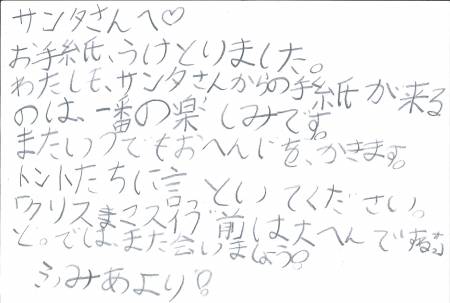 サンタさんへ♡
お手紙、うけとりました。
わたしも、サンタさんからの手紙が来る
のは、一番の楽しみです。
またいつでもおへんじを、かきます。
トントたちに言っといてください。
「クリスますマスイブ前は大へんですね。」
と。では、また会いましょう!
ふみあより!